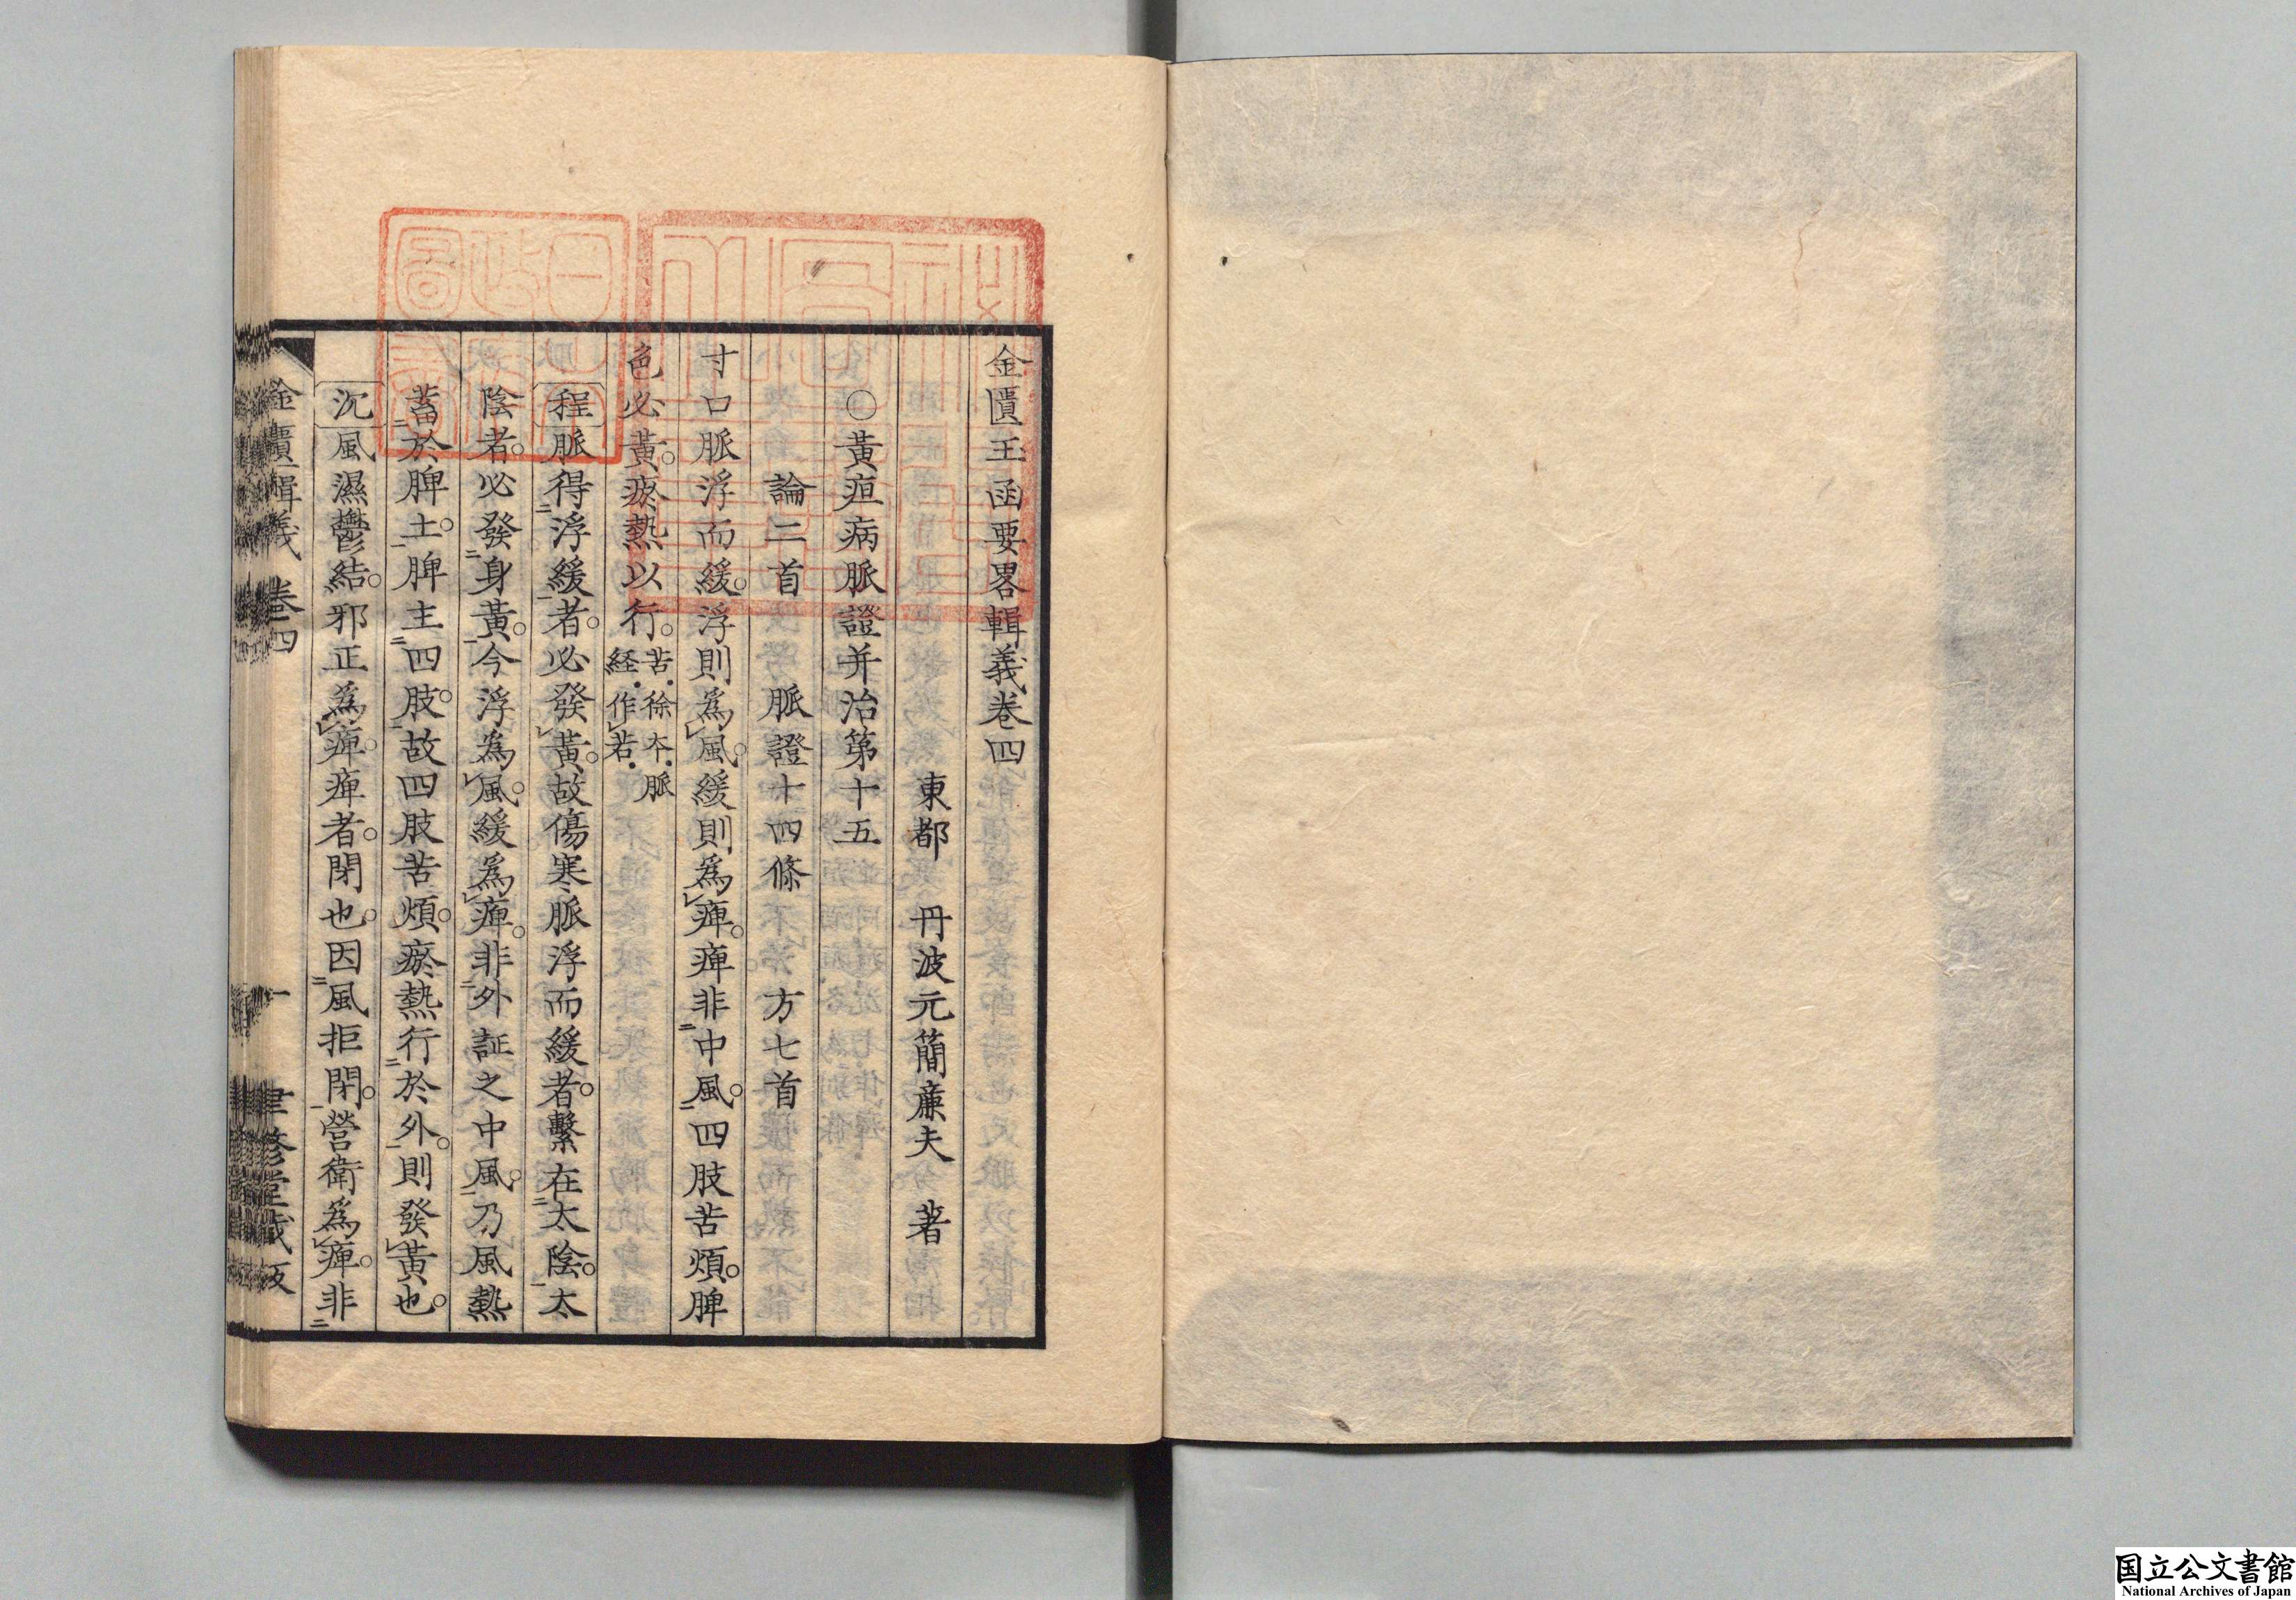 金匱玉函要畧輯義卷四
東都　丹波元簡廉夫　著
○黃疸病脈證并治第十五
論二首　脈證十四條　方七首
寸口脈浮而緩。浮則爲風。緩則爲痺。痺非中風。四肢苦煩。脾
色必黃。瘀熱以行。苦・徐本・脈経・作若・
程脈得浮緩者。必發黃。故傷寒脈浮而緩者。繫在太陰。太
陰者。必發身黃。今浮爲風。緩爲痺。非外証之中風。乃風熱
蓄於脾土。脾主四肢。故四肢苦煩。瘀熱行於外。則發黃也。
沉風濕鬱結。邪正爲痺。痺者。閉也。因風拒閉。營衛爲痺。非
金匱輯義　卷四　一　聿修堂藏版
国立公文書館
National Archives of Japan